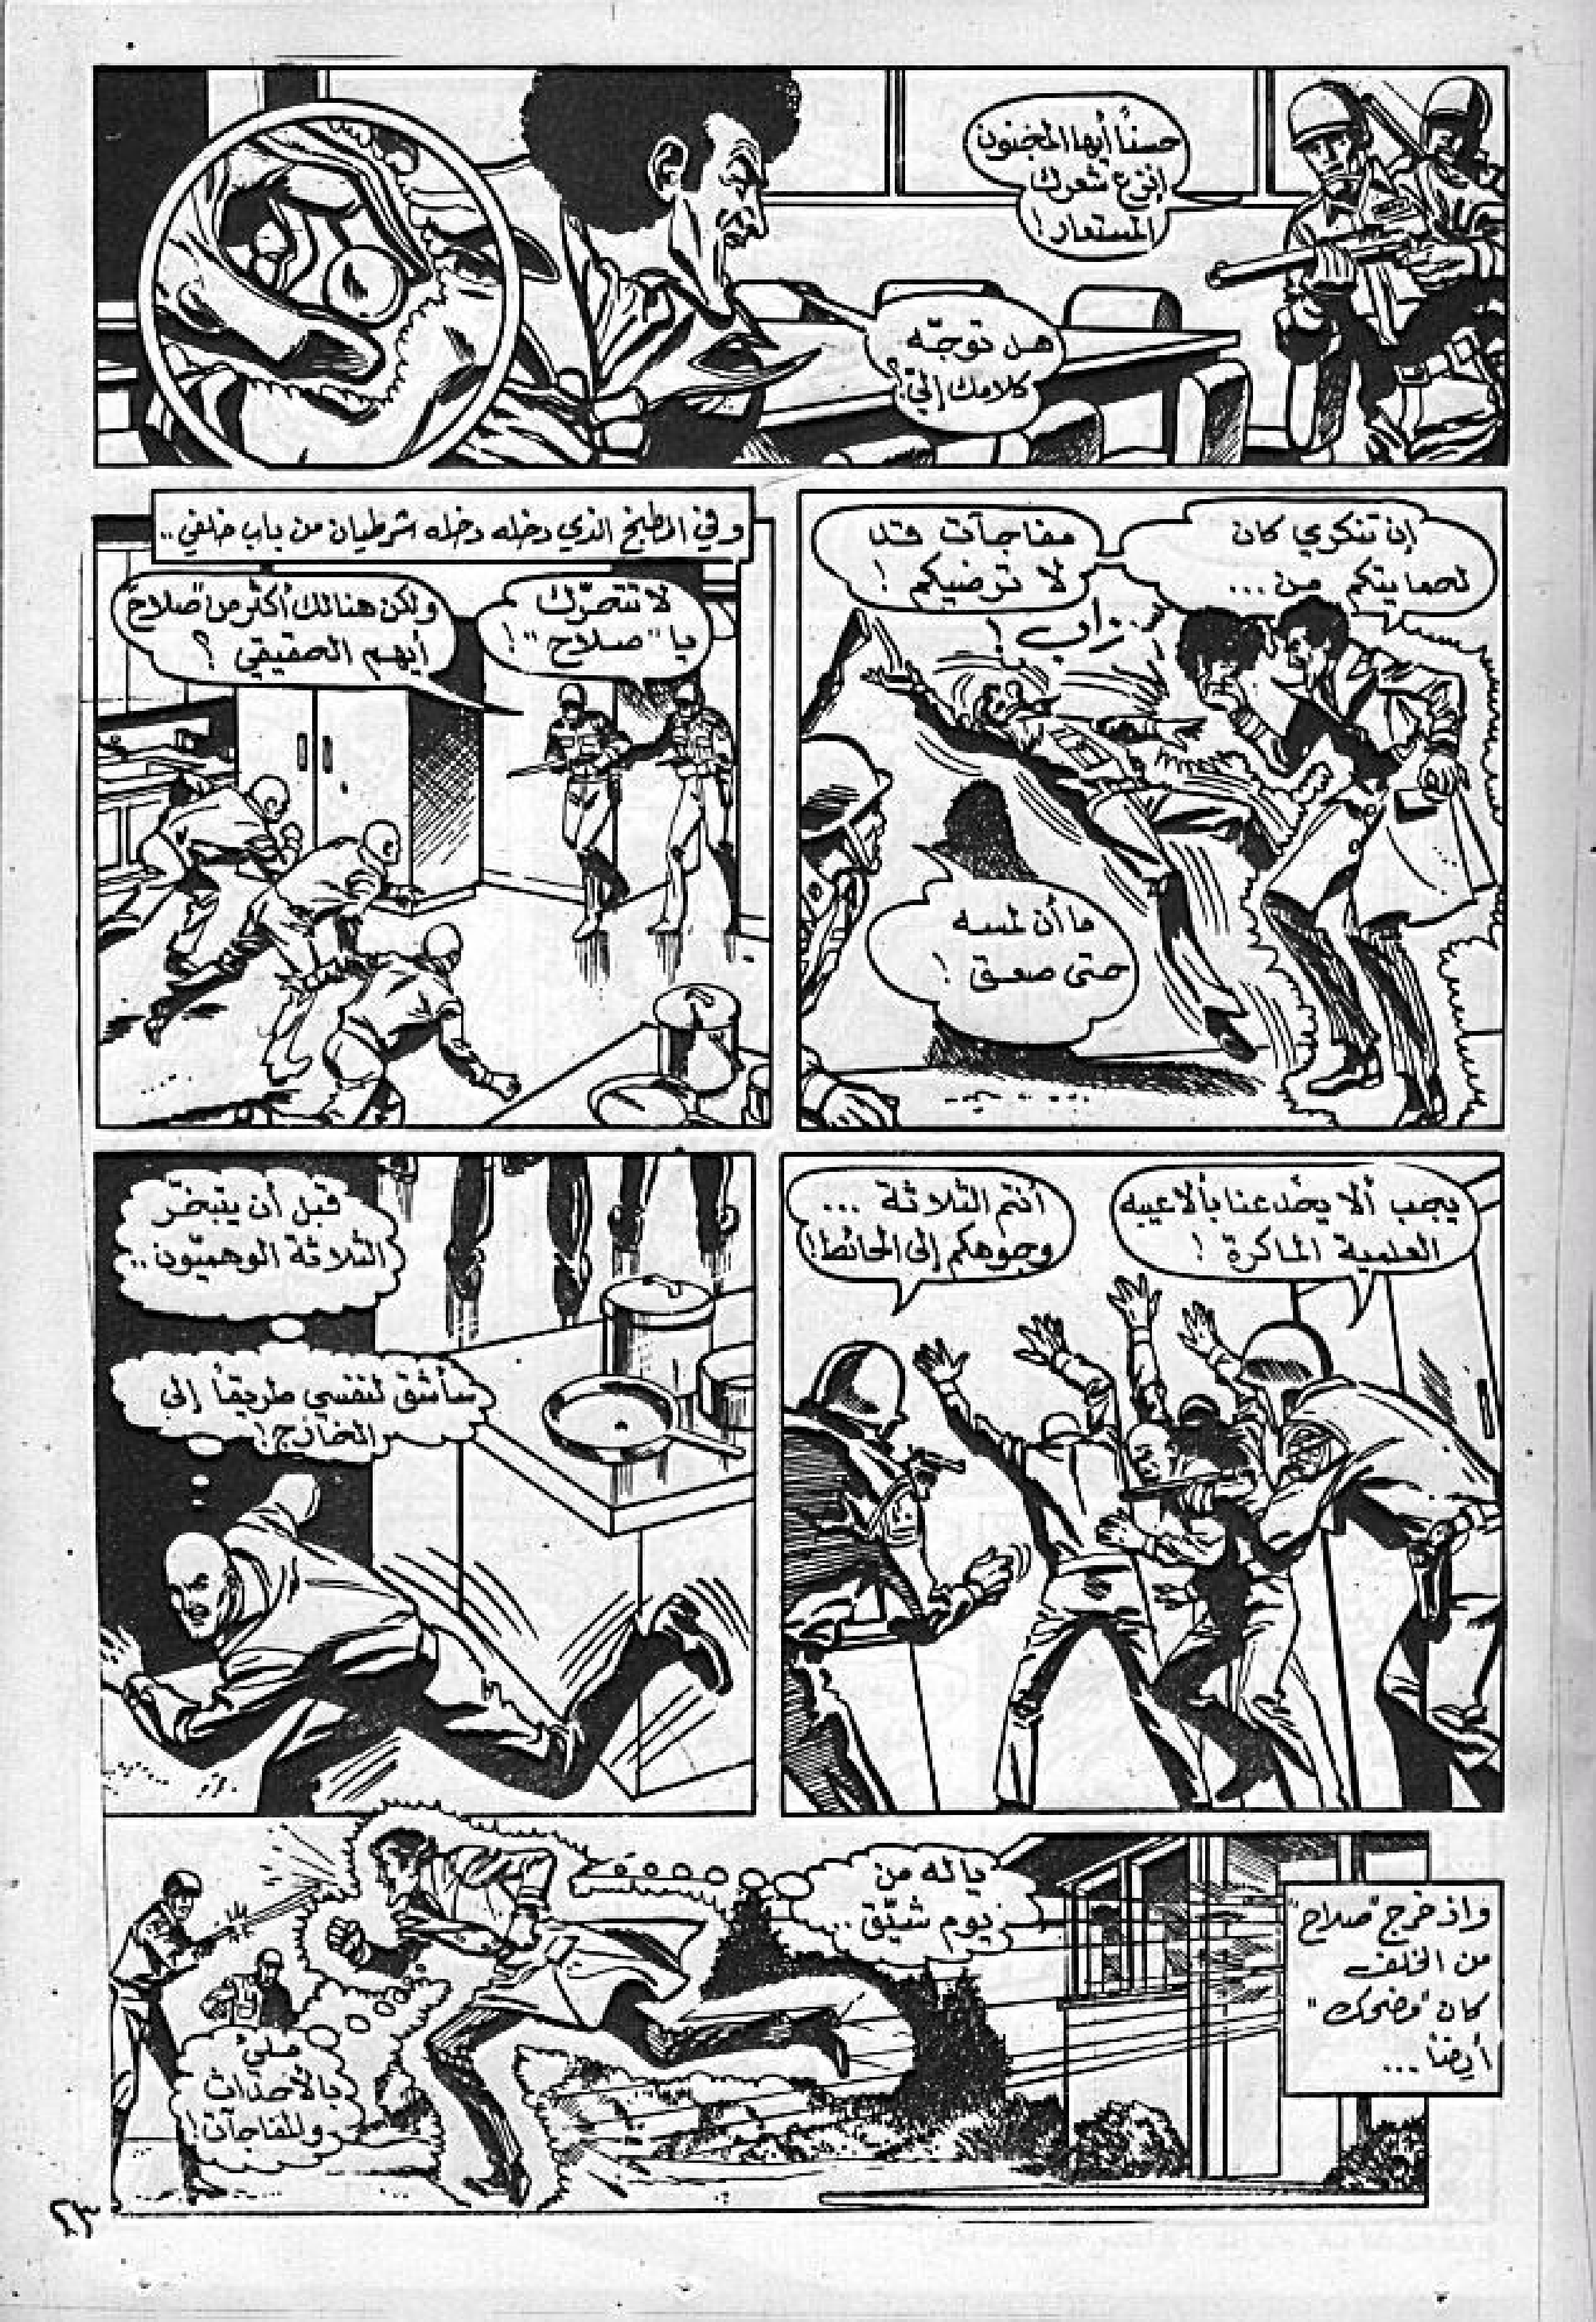 حسنًا أيها المجنون
إنزع شعرك
المستعار!
هل توجّه
كلامك إليّ؟
إن تنكري كان
لحمايتكم من ...
مفاجآت قد
لا ترضيكم!
ززاب!
ما أن لمسه
حتى صعق!
وفي المطبخ الذي دخله دخله شرطيان من باب خلفي..
لا تتحرّك
يا "صلاح"!
ولكن هنالك أكثر من "صلاح"
أيهم الحقيقي؟
يجب ألا يخدعنا بألاعيبه
العلمية الماكرة!
أنتم الثلاثة ...
وجوهكم إلى الحائط!
قبل أن يتبخّر
الثلاثة الوهميّون..
سأشق لنفسي طريقاً إلى
المخارج!
واذ خرج "صلاح"
من الخلف
كان "مضحك"
أيضاً...
ياله من
يوم شيّق..
مليئ
بالأحداث
والمفاجآت!
٢٣